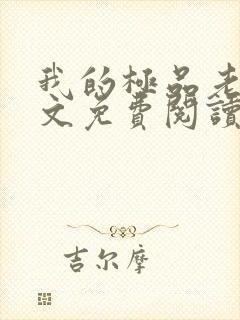 我的極品老
文免費閱讀
吉尔摩